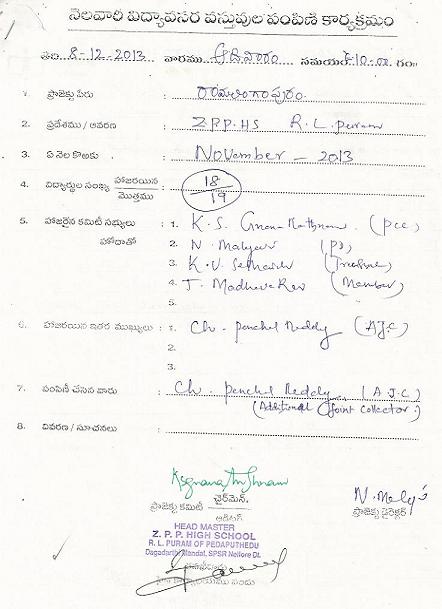 నెలవారి విద్యావసర వస్తువుల పంపిణి కార్యక్రమం
తేది 8-12-2013 వారము ఆదివారం సమయం 10-00 గం
1. ప్రాజెక్టు పేరు : రామలింగాపురం.
2. ప్రదేశము / ఆవరణ : ZPP.HS R.L.puram
3. ఏ నెల కొఱకు : November - 2013
4. విద్యార్థుల సంఖ్య హాజరయిన / మొత్తము : 18 / 19
5. హాజరైన కమిటీ సభ్యులు : 1. K.S. Gnana Rathnam (PCC)
హోదాతో 2. N. (PD)
3. K.V.
4. J. Madhava Rao (Member)
5.
6. హాజరయిన ఇతర ముఖ్యులు : 1. Ch. penchal Reddy (AJC)
2.
3.
7. పంపిణీ చేసిన వారు : Ch. penchal Reddy (AJC)
(Additional Joint Collector)
8. వివరణ / సూచనలు :
చైర్‌మెన్.
ప్రాజెక్టు కమిటీ
ప్రాజెక్టు డైరెక్టర్
HEAD MASTER
Z. P. P. HIGH SCHOOL
R. L. PURAM OF PEDAPUTHEDU
Dagadarthi Mandal, SPSR Nellore Dt.